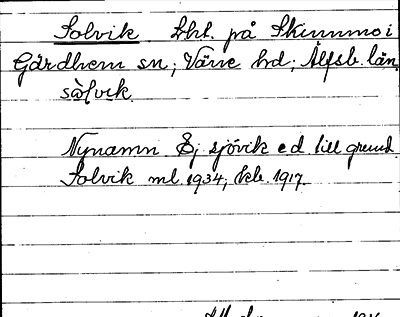 Solvik lht. på Skummo i
Gärdhem sn; Väne hd; Älfsb. län.
sò̀lvik.
Nynamn Ej sjövik e d till grund.
Solvik ml. 1934, kb. 1917.